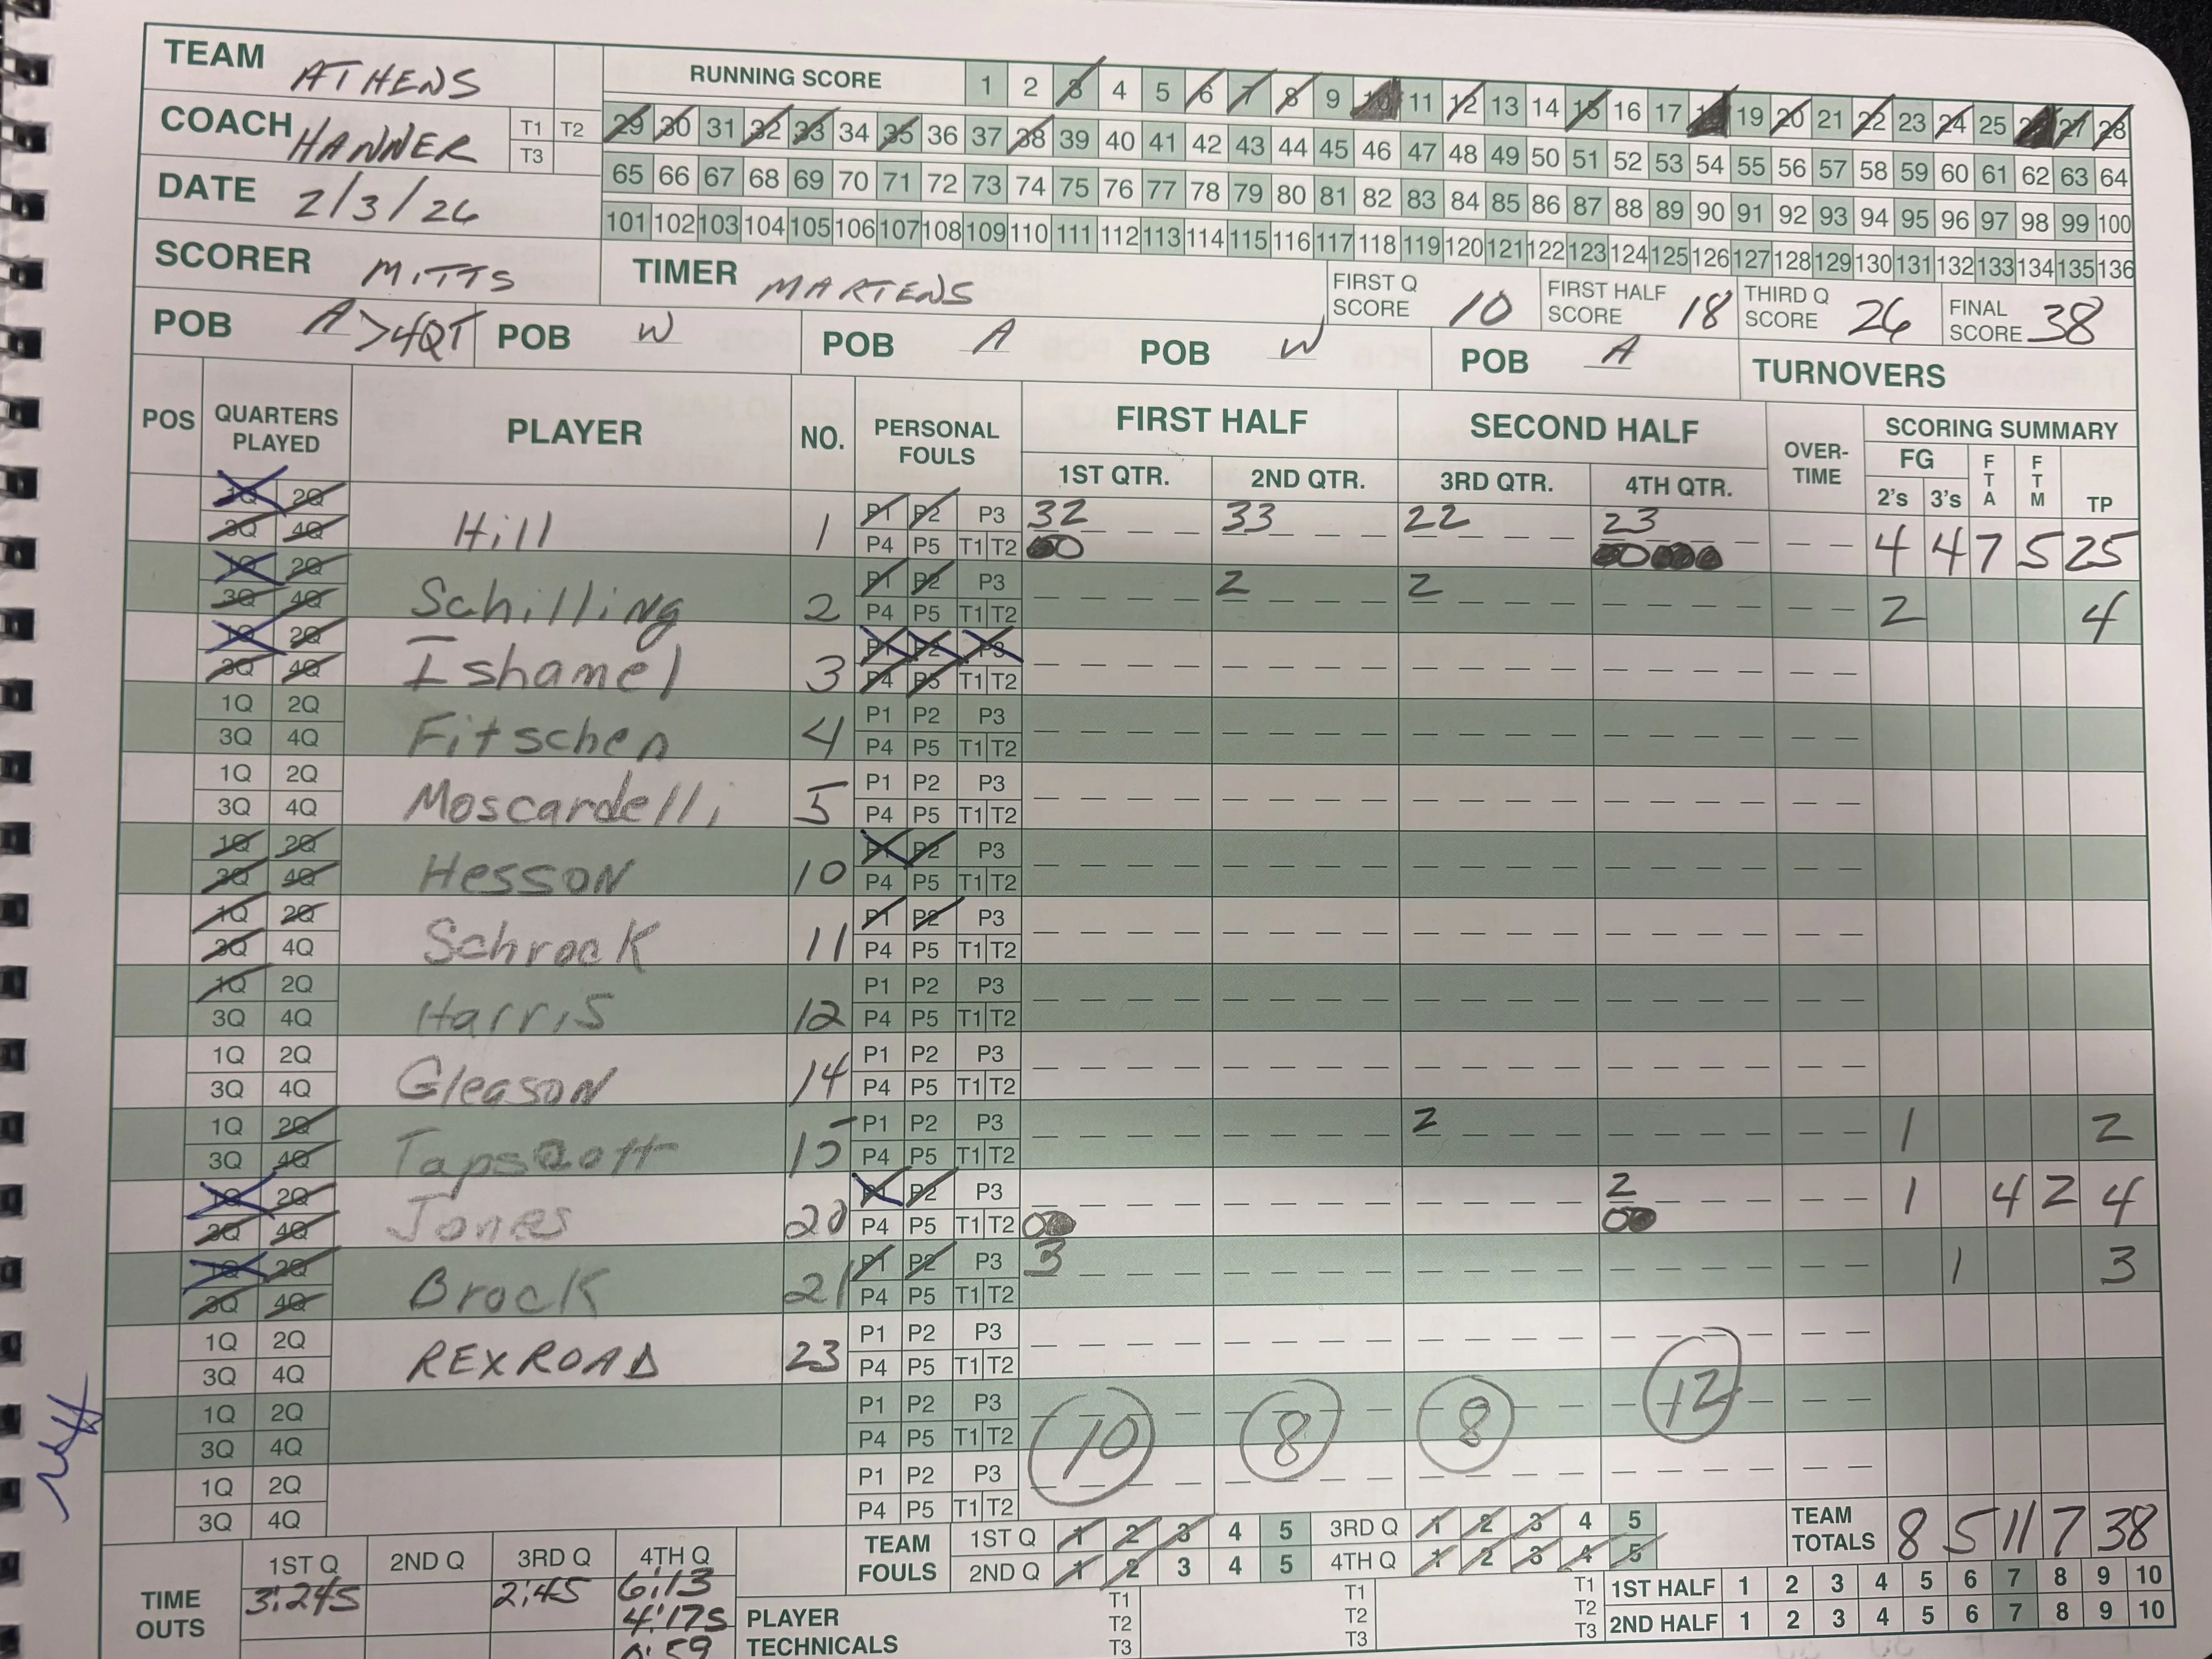 TEAM ATHENS
RUNNING SCORE 1 2 3 4 5 6 7 8 9 10 11 12 13 14 15 16 17 18 19 20 21 22 23 24 25 26 27 28
COACH HANNER T1 T2 T3
29 30 31 32 33 34 35 36 37 38 39 40 41 42 43 44 45 46 47 48 49 50 51 52 53 54 55 56 57 58 59 60 61 62 63 64
DATE 2/3/26
65 66 67 68 69 70 71 72 73 74 75 76 77 78 79 80 81 82 83 84 85 86 87 88 89 90 91 92 93 94 95 96 97 98 99 100
101 102 103 104 105 106 107 108 109 110 111 112 113 114 115 116 117 118 119 120 121 122 123 124 125 126 127 128 129 130 131 132 133 134 135 136
SCORER MITTS TIMER MARTENS FIRST Q SCORE 10 FIRST HALF SCORE 18 THIRD Q SCORE 26 FINAL SCORE 38
POB A >4QT POB W POB A POB W POB A TURNOVERS
POS QUARTERS PLAYED PLAYER NO. PERSONAL FOULS FIRST HALF SECOND HALF OVER-TIME SCORING SUMMARY
1ST QTR. 2ND QTR. 3RD QTR. 4TH QTR. FG 2's 3's FTA FTM TP
1Q 2Q Hill 1 P1 P2 P3 32 33 22 23 4 4 7 5 25
3Q 4Q P4 P5 T1 T2
1Q 2Q Schilling 2 P1 P2 P3 2 2 2 4
3Q 4Q P4 P5 T1 T2
1Q 2Q Ishamel 3 P1 P2 P3
3Q 4Q P4 P5 T1 T2
1Q 2Q Fitschen 4 P1 P2 P3
3Q 4Q P4 P5 T1 T2
1Q 2Q Moscardelli 5 P1 P2 P3
3Q 4Q P4 P5 T1 T2
1Q 2Q Hesson 10 P1 P2 P3
3Q 4Q P4 P5 T1 T2
1Q 2Q Schrock 11 P1 P2 P3
3Q 4Q P4 P5 T1 T2
1Q 2Q Harris 12 P1 P2 P3
3Q 4Q P4 P5 T1 T2
1Q 2Q Gleason 14 P1 P2 P3
3Q 4Q P4 P5 T1 T2
1Q 2Q Tapscott 15 P1 P2 P3 2 1 2
3Q 4Q P4 P5 T1 T2
1Q 2Q Jones 20 P1 P2 P3 2 1 4 2 4
3Q 4Q P4 P5 T1 T2
1Q 2Q Brock 21 P1 P2 P3 3 1 3
3Q 4Q P4 P5 T1 T2
1Q 2Q REXROAD 23 P1 P2 P3
3Q 4Q P4 P5 T1 T2
1Q 2Q P1 P2 P3
3Q 4Q P4 P5 T1 T2 10 8 8 12
1Q 2Q P1 P2 P3
3Q 4Q P4 P5 T1 T2
TEAM FOULS 1ST Q 1 2 3 4 5 3RD Q 1 2 3 4 5 TEAM TOTALS 8 5 11 7 38
2ND Q 1 2 3 4 5 4TH Q 1 2 3 4 5
TIME OUTS 1ST Q 2ND Q 3RD Q 4TH Q
3:24S 2:45 6:13
4:17S
0:59
PLAYER TECHNICALS T1 T2 T3 T1 T2 T3 T1 T2 T3
1ST HALF 1 2 3 4 5 6 7 8 9 10
2ND HALF 1 2 3 4 5 6 7 8 9 10